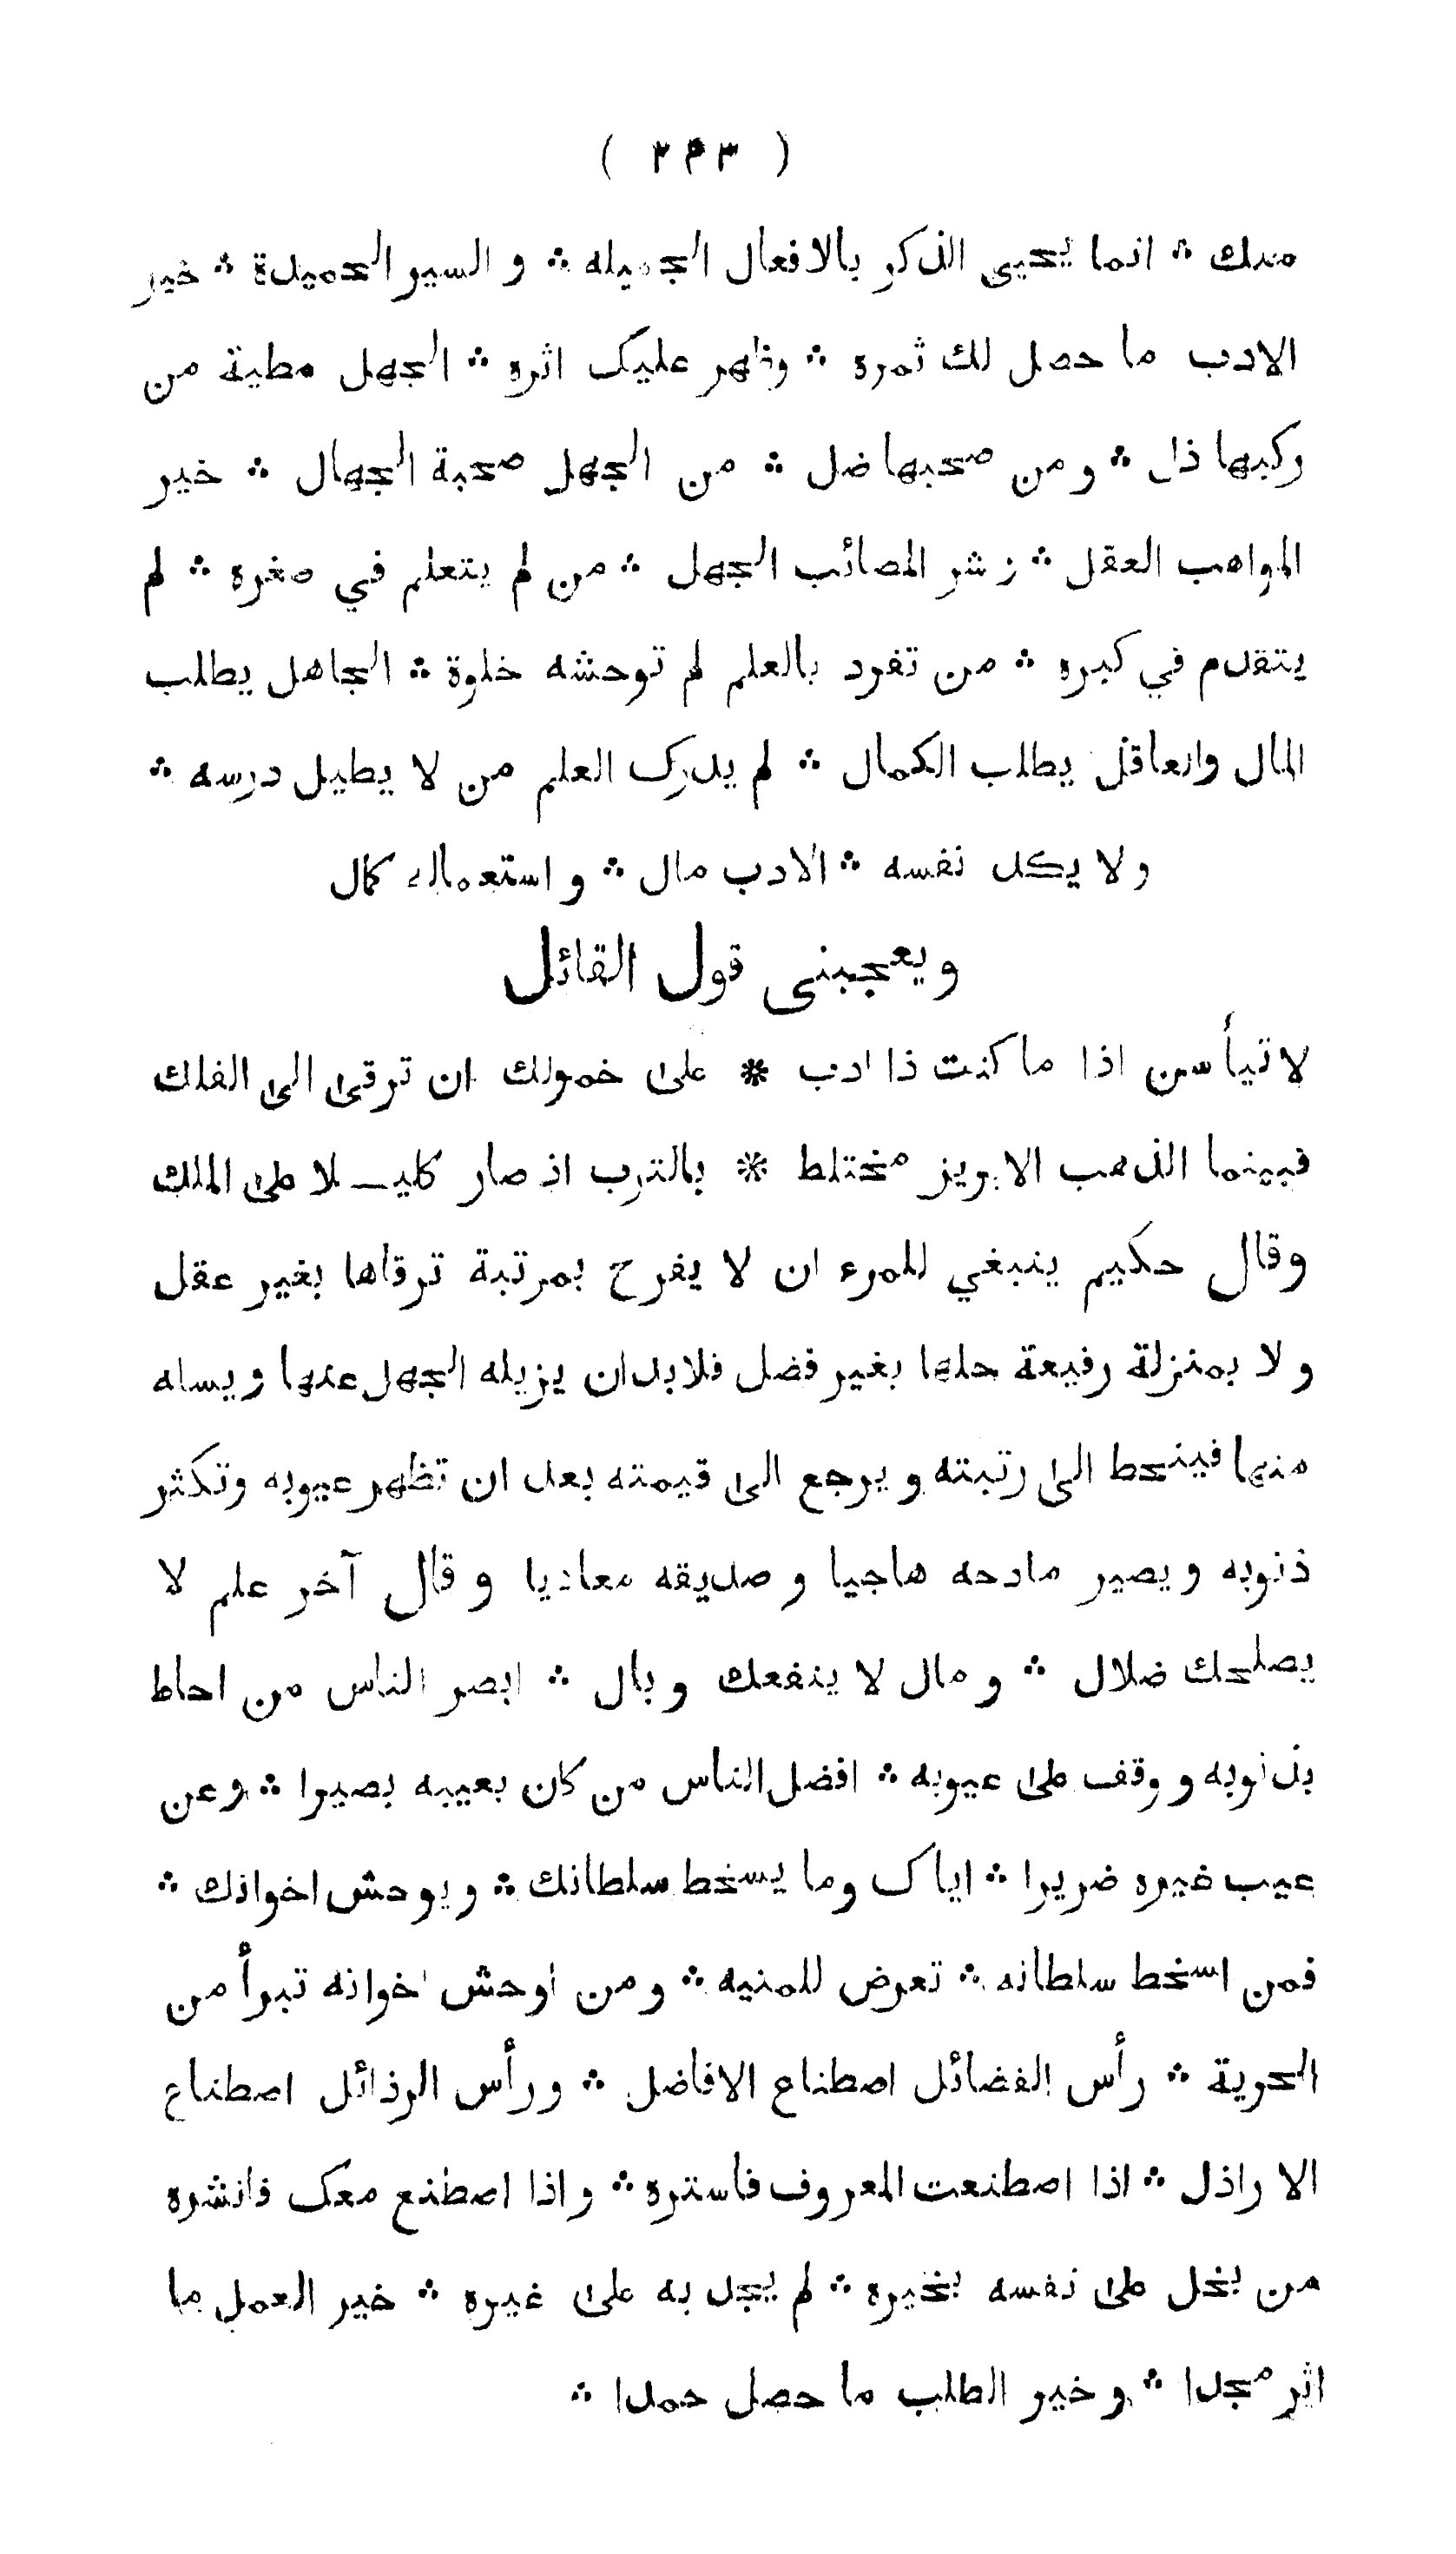 ( ٢٤٣ )
منك ⁂ انما يحيى الذكر بالافعال الجميله ⁂ و السير الحميدة ⁂ خير
الادب ما حصل لك ثمره ⁂ وظهر عليك اثره ⁂ الجهل مطية من
ركبها ذل ⁂ و من صحبها ضل ⁂ من الجهل صحبة الجهال ⁂ خير
المواهب العقل ⁂ و شر المصائب الجهل ⁂ من لم يتعلم في صغره ⁂ لم
يتقدم في كبره ⁂ من تفرد بالعلم لم توحشه خلوة ⁂ الجاهل يطلب
المال والعاقل يطلب الكمال ⁂ لم يدرك العلم من لا يطيل درسه ⁂
ولا يكد نفسه ⁂ الادب مال ⁂ و استعماله كمال
ويعجبنى قول القائل
لا تيأسن اذا ما كنت ذا ادب * على خمولك ان ترقى الى الفلك
فبينما الذهب الابريز مختلط * بالترب اذ صار كليـــلا على الملك
وقال حكيم ينبغي للمرء ان لا يفرح بمرتبة ترقاها بغير عقل
و لا بمنزلة رفيعة حلها بغير فضل فلابد ان يزيله الجهل عنها و يسله
منها فينحط الى رتبته و يرجع الى قيمته بعد ان تظهر عيوبه وتكثر
ذنوبه و يصير مادحه هاجيا و صديقه معاديا و قال آخر علم لا
يصلحك ضلال ⁂ و مال لا ينفعك و بال ⁂ ابصر الناس من احاط
بذنوبه و وقف على عيوبه ⁂ افضل الناس من كان بعيبه بصيرا ⁂ وعن
عيب غيره ضريرا ⁂ اياك وما يسخط سلطانك ⁂ و يوحش اخوانك ⁂
فمن اسخط سلطانه ⁂ تعرض للمنيه ⁂ و من اوحش اخوانه تبرأ من
الحرية ⁂ رأس الفضائل اصطناع الافاضل ⁂ و رأس الرذائل اصطناع
الاراذل ⁂ اذا اصطنعت المعروف فاستره ⁂ و اذا اصطنع معك فانشره
من بخل على نفسه بخيره ⁂ لم يجد به على غيره ⁂ خير العمل ما
اثر مجدا ⁂ و خير الطلب ما حصل حمدا ⁂